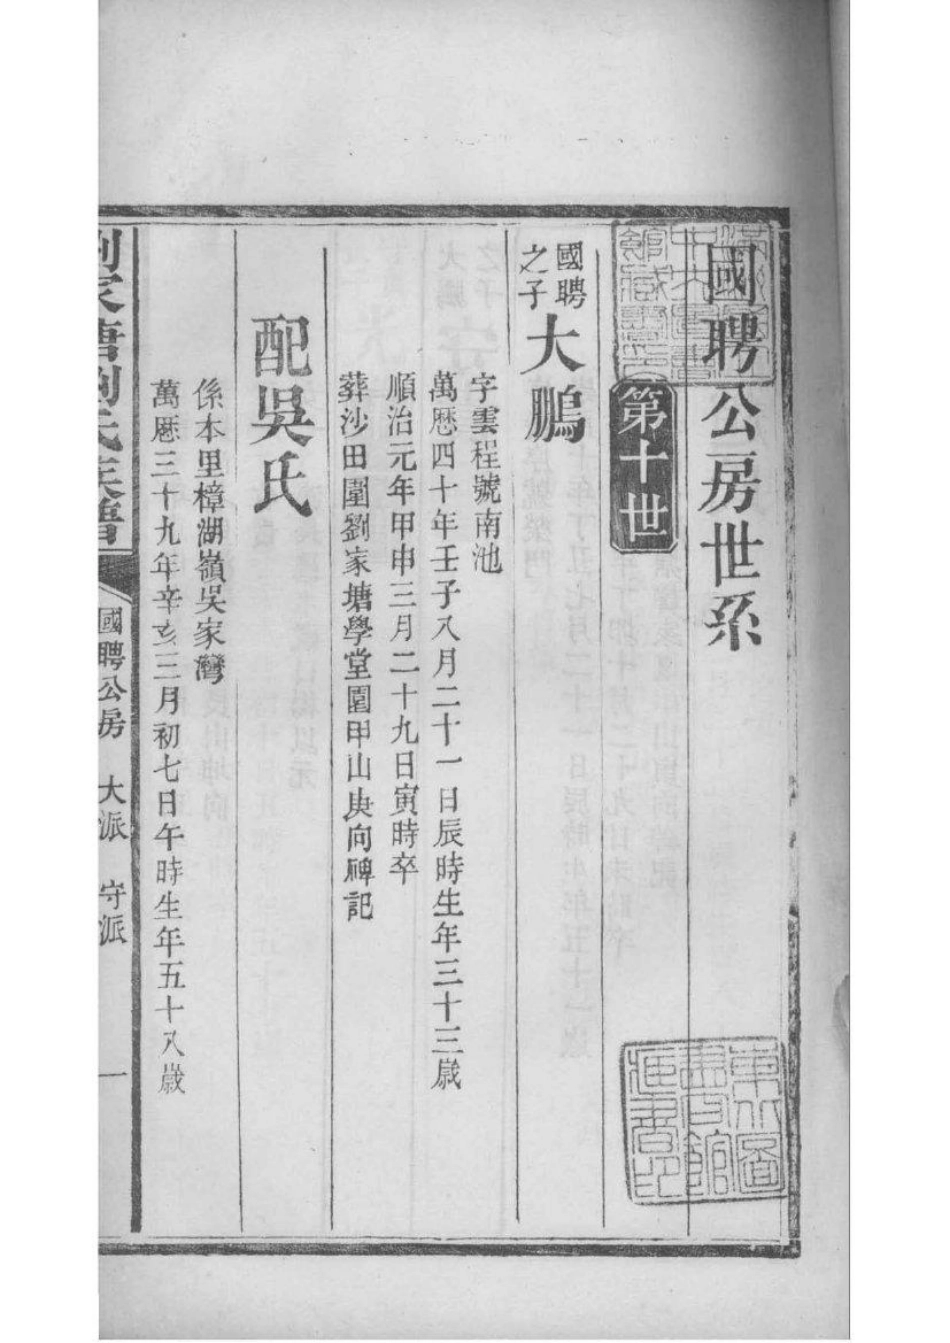 國聘公房世系
第十世
國聘
之子
大鵬
字雲程號南池
萬厯四十年壬子八月二十一日辰時生年三十三嵗
順治元年甲申三月二十九日寅時卒
葬沙田圍劉家塘學堂園甲山庚向碑記
配吳氏
係本里樟湖嶺吳家灣
萬厯三十九年辛亥三月初七日午時生年五十八嵗
劉家塘劉氏族譜
國聘公房 大派 守派 一